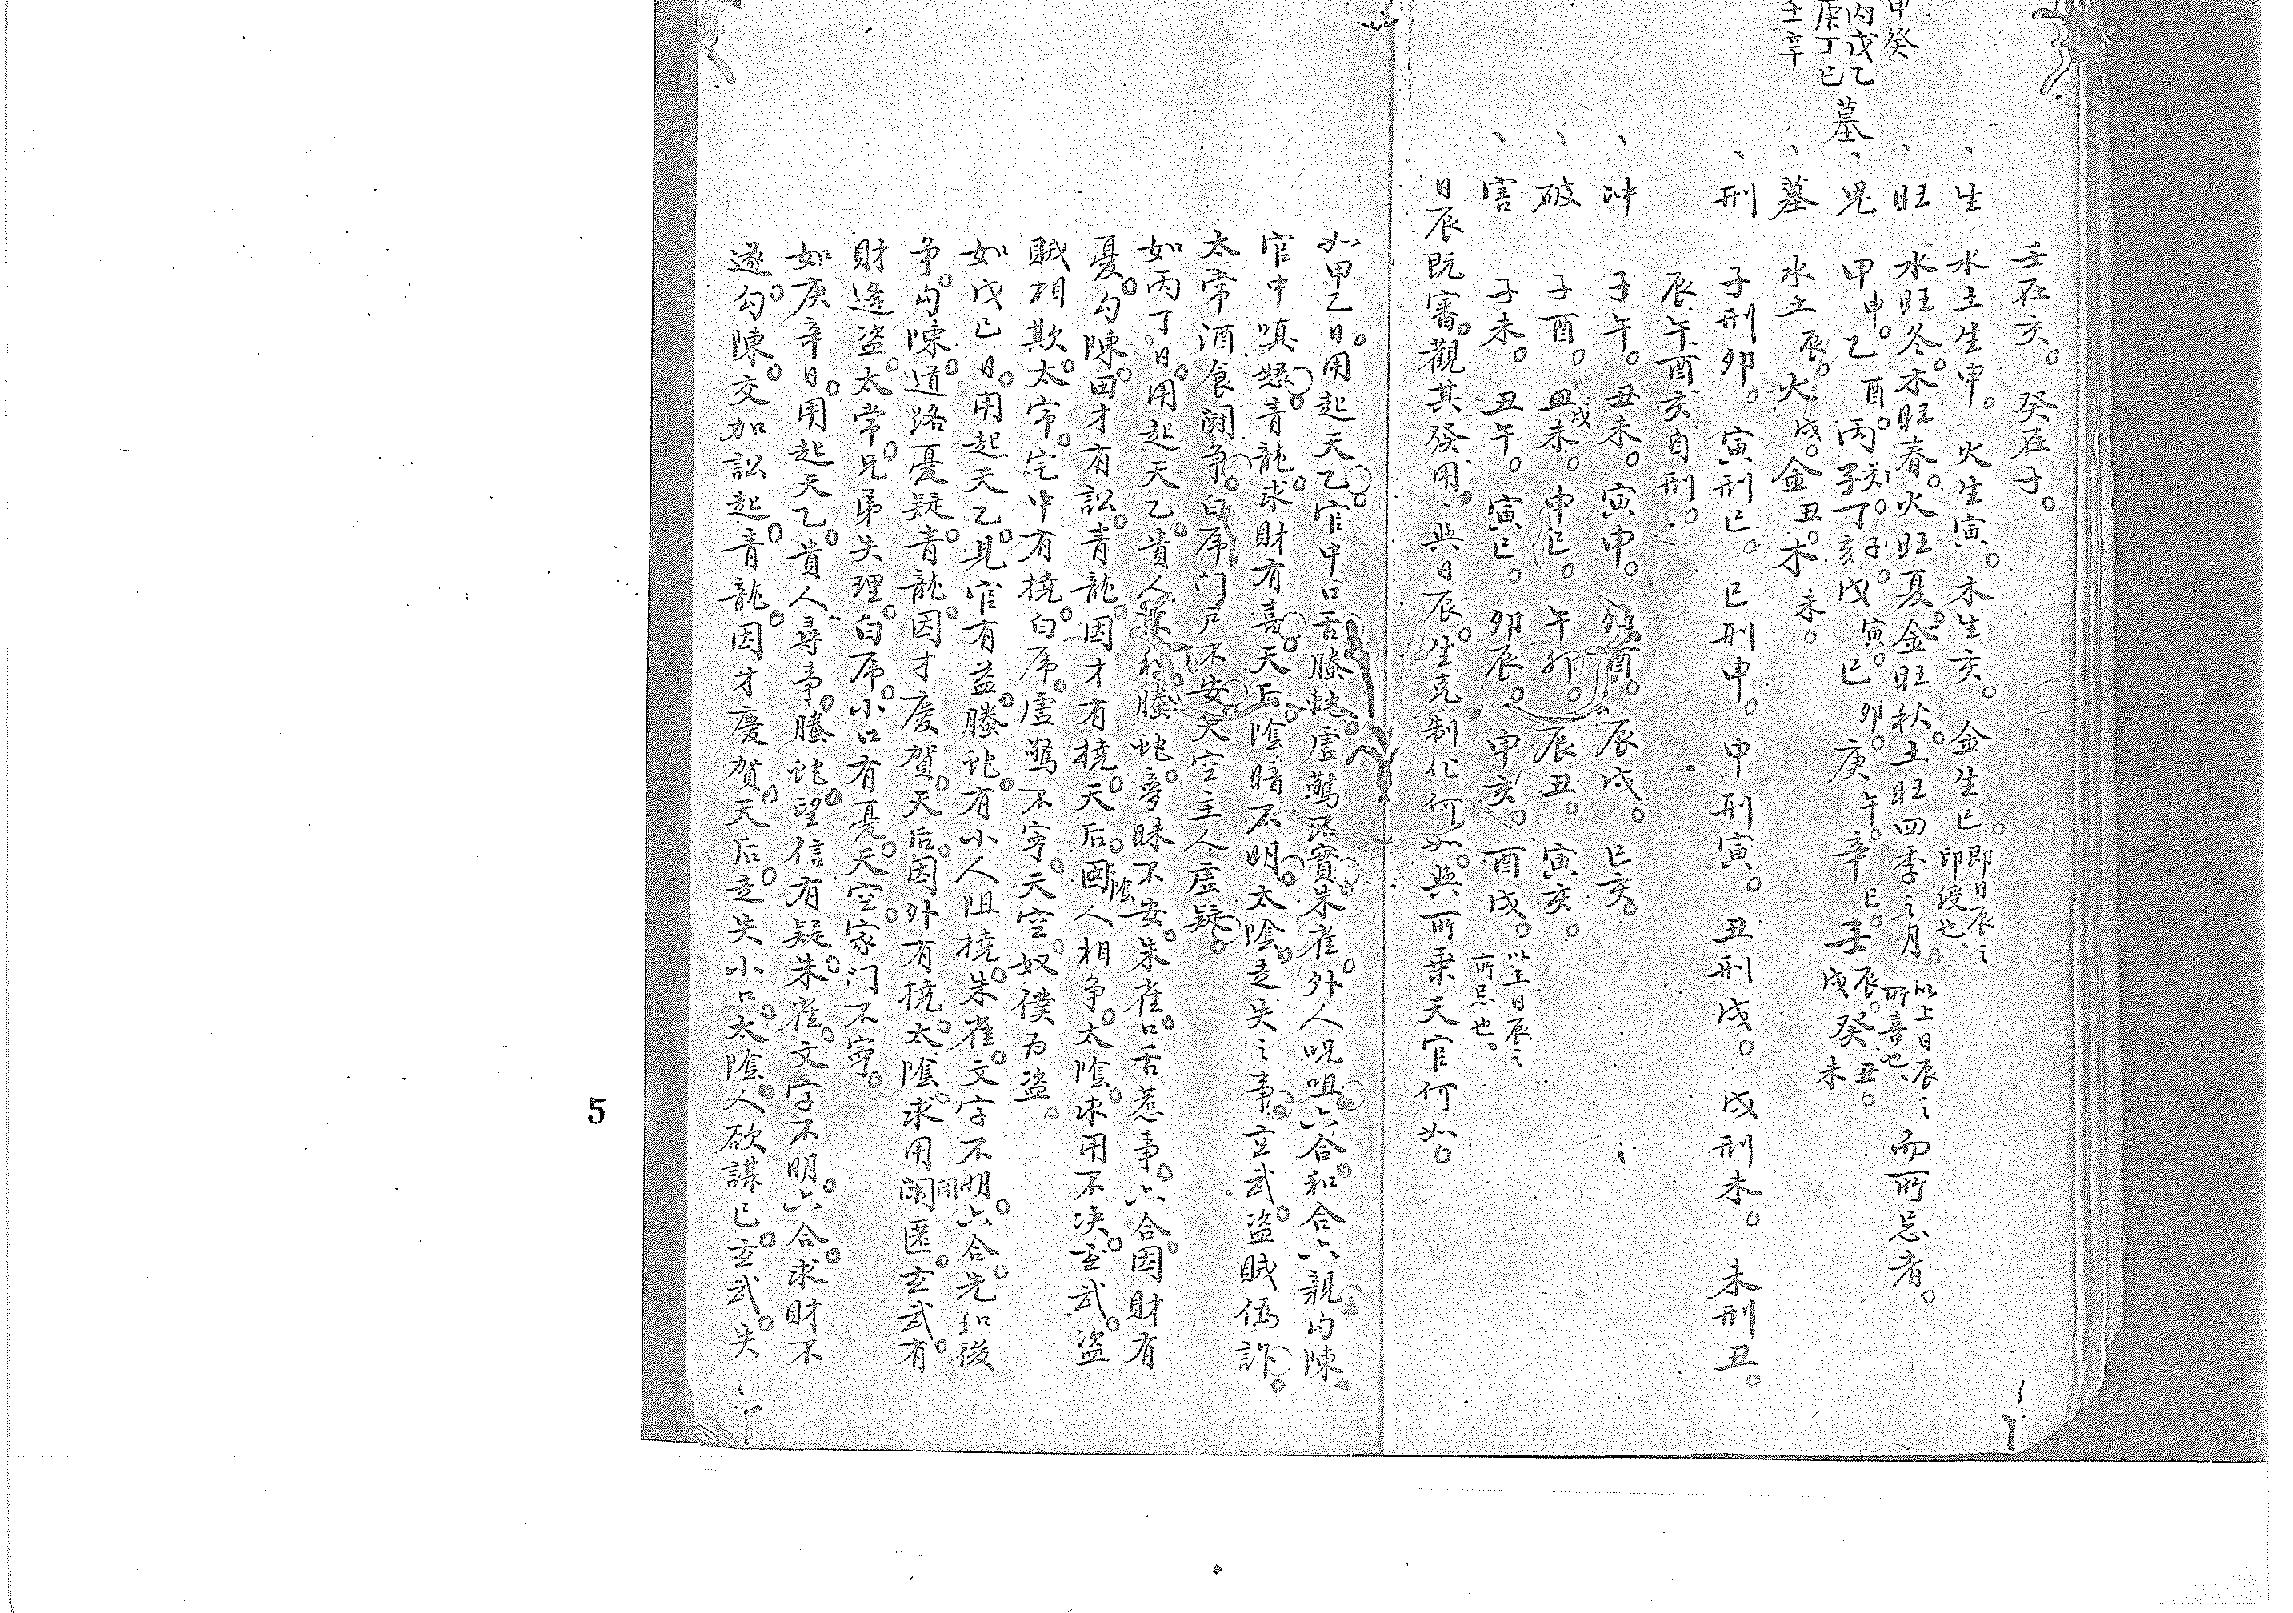 壬在亥。癸在子。
生 水土生申。火生寅。木生亥。金生巳。即日辰之印绶也、
旺 水旺冬。木旺春。火旺夏。金旺秋。土旺四季之月。以上日辰之所喜也、而所忌者。
鬼 甲申。乙酉。丙子亥丁。亥子。戊寅。己卯。庚午。辛巳。壬辰戌。癸丑未。
甲癸
丙戊乙
庚丁己 墓
壬辛
墓 水土辰。火戌。金丑。木未。
刑 子刑卯。寅刑巳。巳刑申。申刑寅。丑刑戌。戌刑未。未刑丑。
辰午酉亥自刑。
冲 子午。丑未。寅申。卯酉。辰戌。巳亥。
破 子酉。丑未戌。申巳。午卯。辰丑。寅亥。
害 子未。丑午。寅巳。卯辰。申亥。酉戌。以上日辰之所忌也。
日辰既審。觀其發用。與日辰。生克制化何如。與所乘天官何如。
如甲乙日。用起天乙。官中口舌螣蛇。虚驚不實。朱雀。外人呪咀。六合。和合六親。勾陳。
官中嗔怒。青龍。求財有喜。天后。陰暗不明。太陰。走失之事。玄武。盗賊偽詐。
太常酒食鬧争。白虎门户不安。天空主人虚疑。
如丙丁日。用起天乙。貴人。螣蛇。夢昧不安。朱雀。口舌惹事。六合。因財有
憂。勾陳。田才有訟。青龍。因才有撓。天后。因陰人相争。太陰。求用不决。玄武。盗
賊相欺。太常。宅中有撓。白虎。虚驚不寧。天空。奴僕为盗。
如戊己日。用起天乙。見官有益。螣蛇。有小人阻撓。朱雀。文字不明。六合。先和後
争。勾陳。道路憂疑。青龍。因才慶賀。天后。因外有撓。太陰。求用闇匿。玄武。有
財逃盗。太常。兄弟失理。白虎。小口有憂。天空。家门不寧。
如庚辛日。用起天乙。貴人尋争。螣蛇。望信有疑。朱雀。文字不明。六合。求財不
遂。勾陳。交加訟起。青龍。因才慶賀。天后。走失小口。太陰。人欲謀己。玄武。失
5